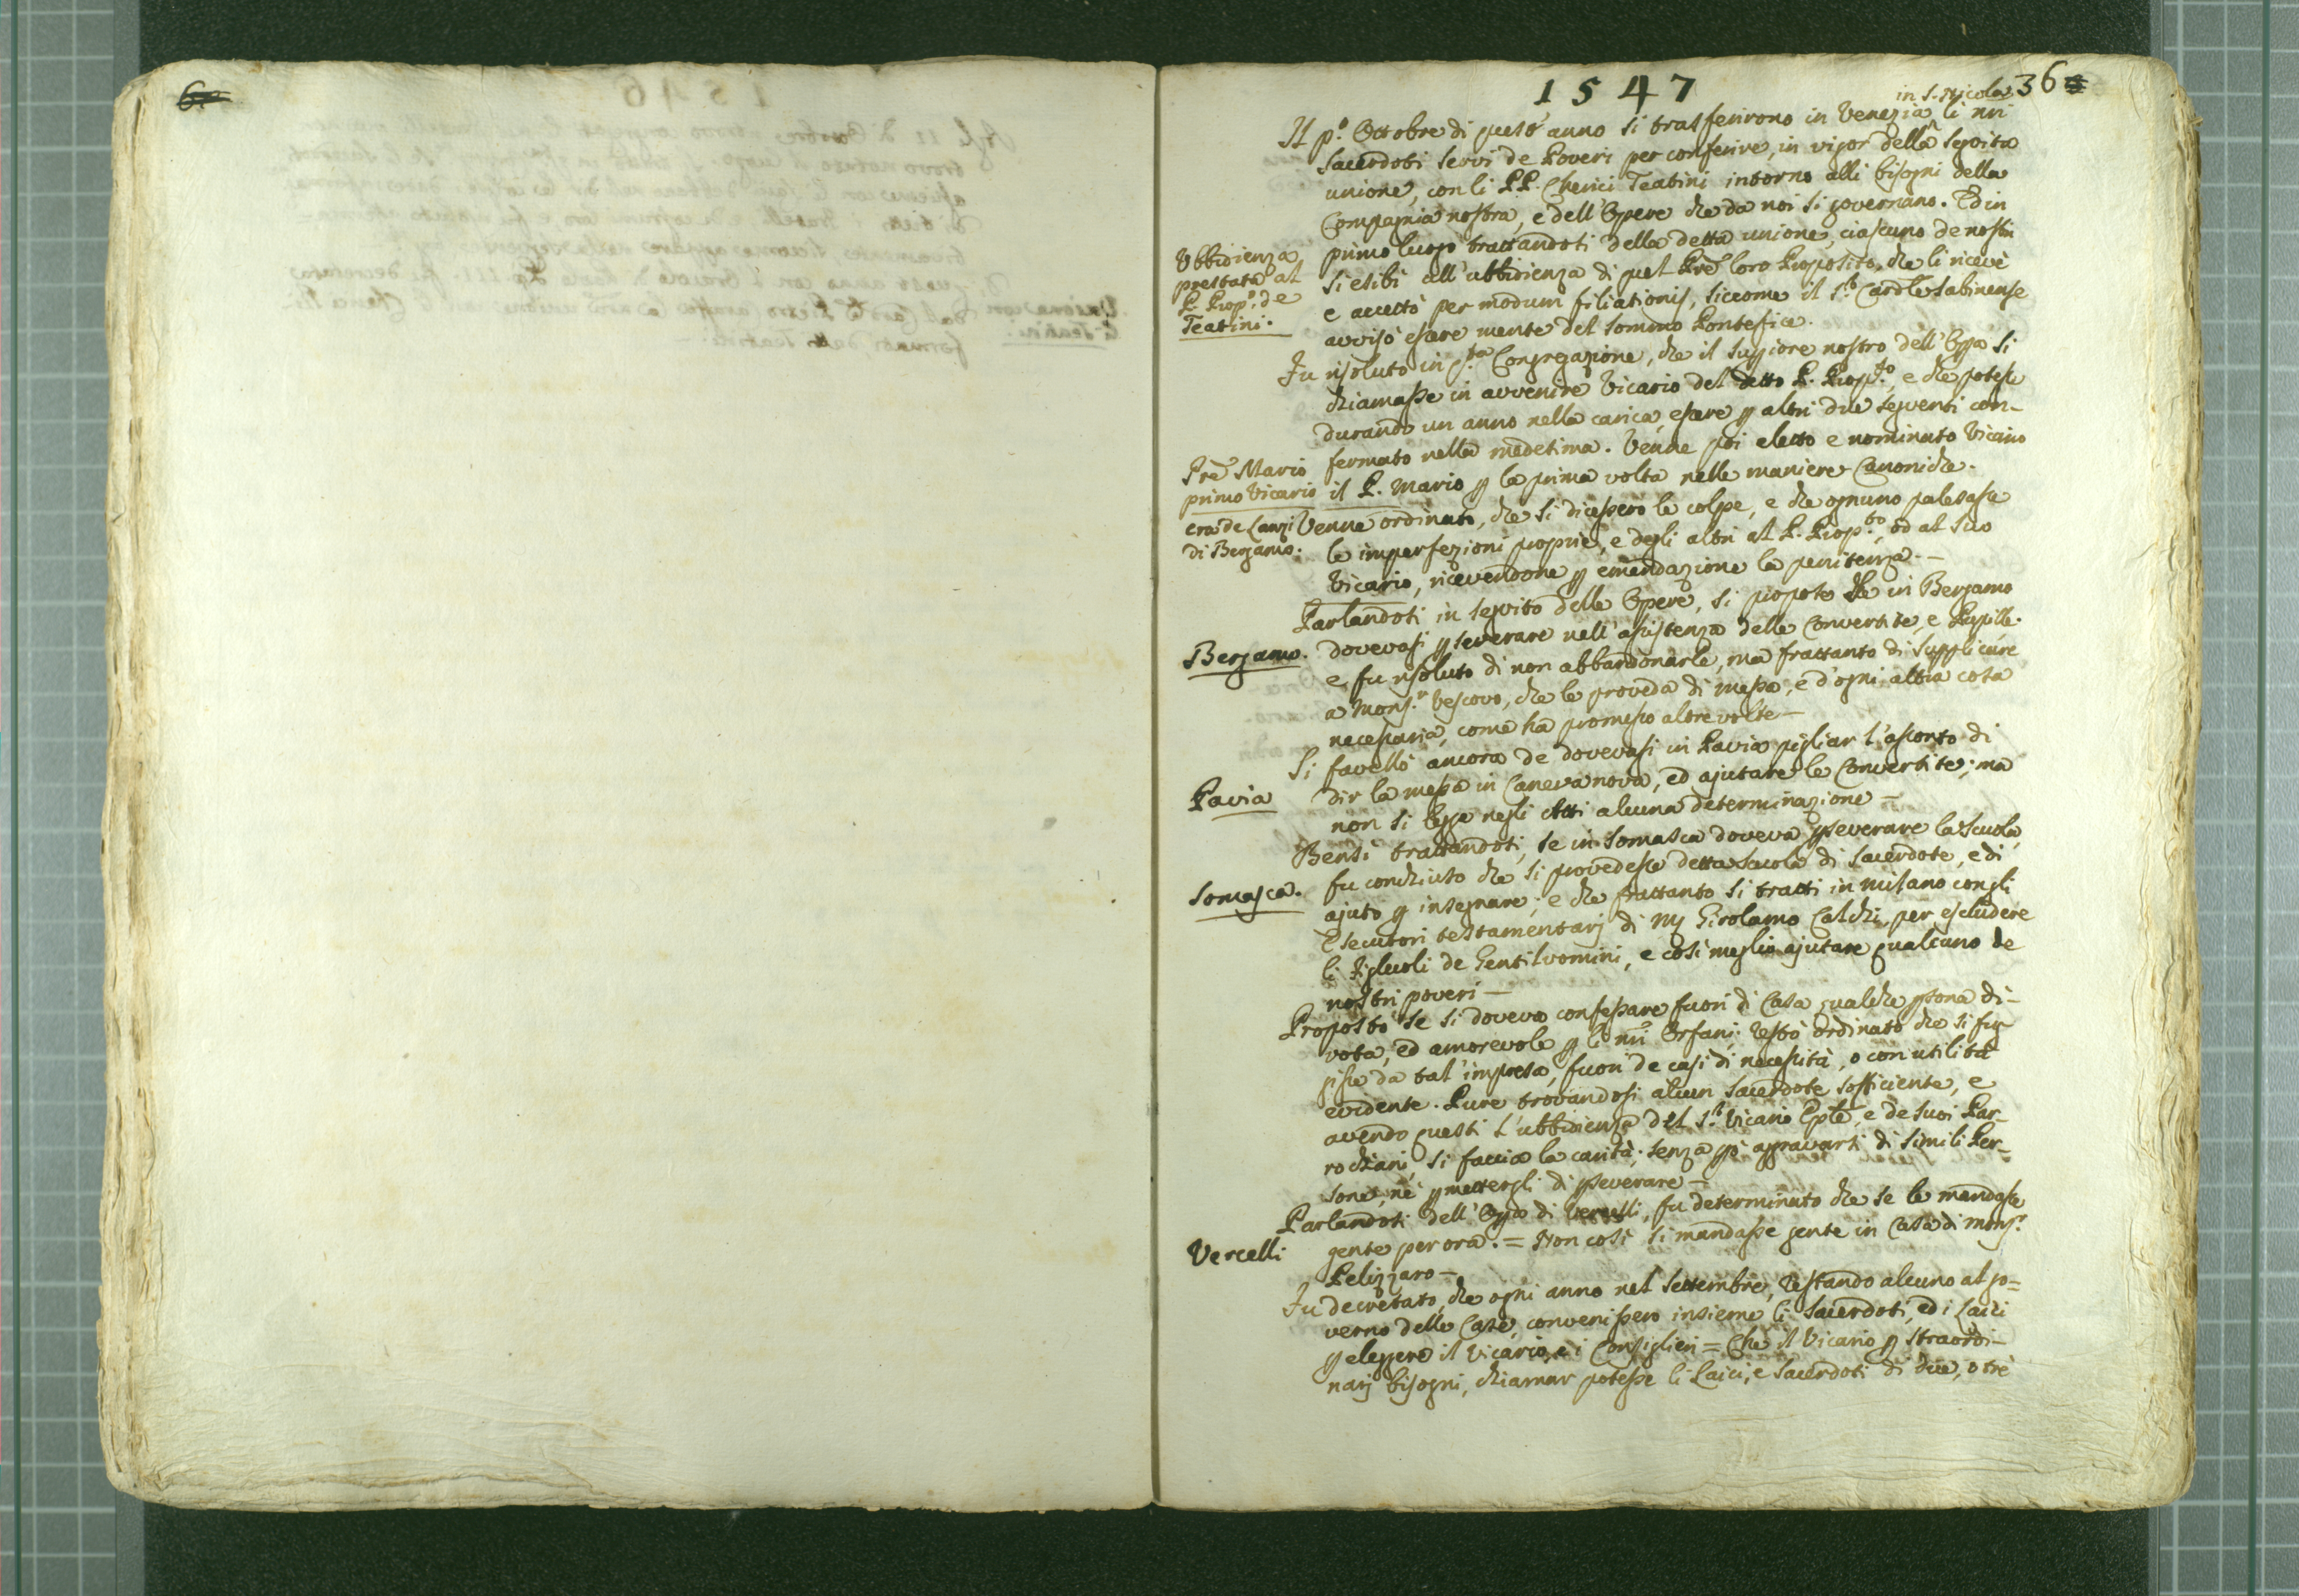 6
1547
36
in S. Nicola
Il p.º Ottobre di quest'anno si trasferirono in Venezia li nri
Sacerdoti Servi de Poveri per conferire, in vigor della seguita
unione, con li PP. Cherici Teatini intorno alli bisogni della
Compagnia nostra, e dell'Opere che da noi si governano. Ed in
primo luogo trattandosi della detta unione, ciascuno de nostri
si esibì all'ubbidienza di quel Pre loro Proposito, che li ricevè
e accettò per modum filiationis, siccome il S.r Cardle Sabinense
avvisò essere mente del Sommo Pontefice.
Ubbidienza
prestata al
P. Prop.º de
Teatini.
Fu risoluto in q.sta Congregazione, che il Suppiore nostro dell'Oppa si
chiamasse in avvenire Vicario del detto P. Prop.to, e che potesse
durando un anno nella carica, essere p altri due seguenti con-
fermato nella medesima. Venne poi eletto e nominato Vicario
il P. Mario p la prima volta nelle maniere Canoniche.
Pre Mario
primo Vicario
era de Lanzi
di Bergamo.
Venne ordinato, che si dicessero le colpe, e che ognuno palesasse
le imperfezioni proprie, e degli altri al P. Prop.to, od al suo
Vicario, ricevendone p emendazione la penitenza.—
Parlandosi in seguito delle Opere, si propose se in Bergamo
dovevasi pseverare nell'assistenza delle Convertite, e Pupille.
e fu risoluto di non abbandonarle, ma frattanto di supplicare
a Mons.r Vescovo, che le proveda di messa, e d'ogni altra cosa
necessaria, come ha promesso altre volte—
Bergamo.
Si favellò ancora se dovevasi in Pavia pigliar l'assonto di
dir la messa in Canevanova, ed ajutare le Convertite; ma
non si legge negli Atti alcuna determinazione—
Pavia
Bensì trattandosi, se in Somasca doveva pseverare la scuola,
fu conchiuso che si provedesse detta scuola di Sacerdote, e di
ajuto p insegnare; e che frattanto si tratti in Milano con gli
Esecutori testamentarj di M Girolamo Calchi, per escludere
li Figliuoli de Gentiluomini, e così meglio ajutare qualcuno de
nostri poveri—
Somasca.
Proposto se si doveva confessare fuori di Casa qualche psona di-
vota, ed amorevole p li nri Orfani; restò ordinato che si fug-
gisse da tal'impresa, fuori de casi di necessità, o con utilità
evidente. Pure trovandosi alcun Sacerdote sofficiente, e
avendo questi l'ubbidienza del S.r Vicario Eple, e de suoi Par-
rochiani, si faccia la carità; senza pò aggravarsi di simili Per-
sone, nè pmettergli di pseverare—
Parlandosi dell'Oppa di Vercelli, fu determinato che se le mandasse
gente per ora. = Non così si mandasse gente in Casa di Mons.r
Pelizzaro—
Vercelli
Fu decretato, che ogni anno nel Settembre, restando alcuno al go-
verno delle Case, convenissero insieme li Sacerdoti, ed i Laici
p eleggere il Vicario, e i Consiglieri = Che il Vicario p straordi-
narj bisogni, chiamar potesse li Laici, e Sacerdoti di due, o tre